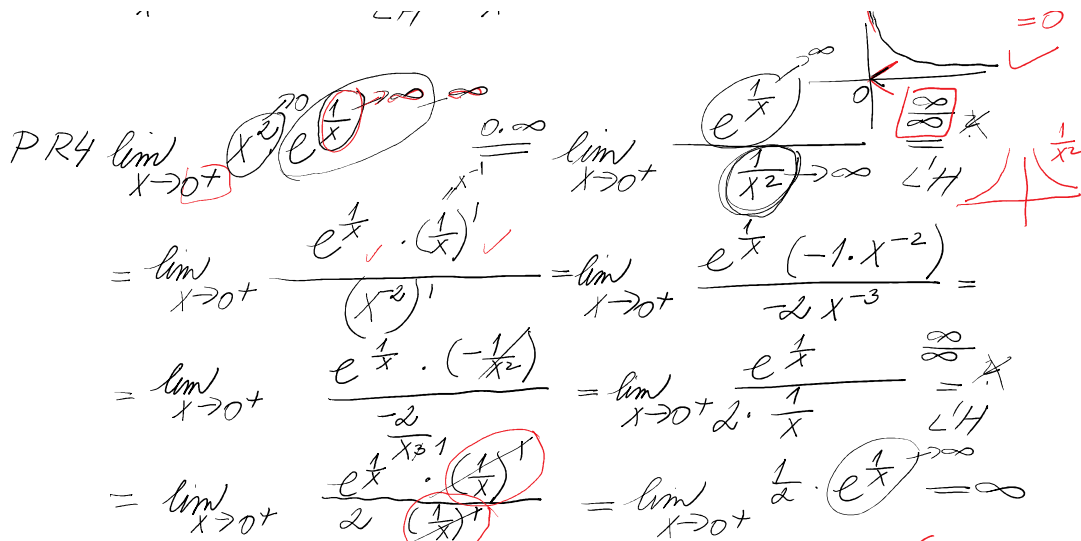 L'H
= 0 ✓
PR4 lim x→0⁺ x² →0 e^(1/x) →∞ →∞ 0·∞ = lim x→0⁺ e^(1/x) →∞ / (1/x²) →∞ ∞/∞ = L'H 0 1/x²
= lim x→0⁺ e^(1/x) · (1/x)' x⁻¹ / (x⁻²)' = lim x→0⁺ e^(1/x) (-1·x⁻²) / -2x⁻³ =
= lim x→0⁺ e^(1/x) · (-1/x²) / (-2/x³) = lim x→0⁺ e^(1/x) / 2·1/x ∞/∞ = L'H
= lim x→0⁺ e^(1/x) · (1/x)' / 2 (1/x)' = lim x→0⁺ 1/2 · e^(1/x) →∞ = ∞